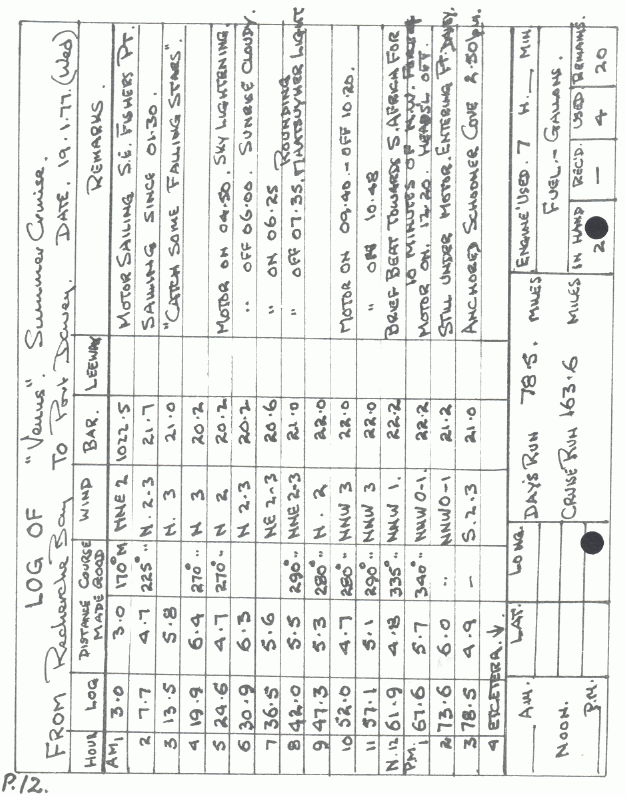 P.12.
LOG OF "Venus". Summer Cruise.
FROM Recherche Bay TO Port Davey. DATE. 19.1.77. (Wed)
HOUR LOG DISTANCE MADE COURSE GOOD WIND BAR. LEEWAY REMARKS.
AM 1 3.0 3.0 170° M NNE 2 1022.5 MOTOR SAILING S.E. FISHERS PT.
2 7.7 4.7 225° " N. 2-3 21.7 SAILING SINCE 01.30.
3 13.5 5.8 N. 3 21.0 "CATCH SOME FALLING STARS".
4 19.9 6.4 270° " N 3 20.2
5 24.6 4.7 270° " N 2 20.2 MOTOR ON 04.50. SKY LIGHTENING.
6 30.9 6.3 N 2-3 20.2 " OFF 06.00. SUNRISE CLOUDY.
7 36.5 5.6 NE 2-3 20.6 " ON 06.25
8 42.0 5.5 290° " NNE 2-3 21.0 " OFF 07.35. ROUNDING MAATSUYKER LIGHT
9 47.3 5.3 280° " N. 2 22.0
10 52.0 4.7 280° " NNW 3 22.0 MOTOR ON 09.40 - OFF 10.20.
11 57.1 5.1 290° " NNW 3 22.0 " ON 10.48
N. 12 61.9 4.8 335° " NNW 1. 22.2 BRIEF BEAT TOWARDS S. AFRICA FOR
10 MINUTES OF N.W.
P.M. 1 67.6 5.7 340° " NNW 0-1. 22.2 MOTOR ON. 12.20. HEADSL OFF.
2 73.6 6.0 " NNW 0-1 21.2 STILL UNDER MOTOR. ENTERING PT. DAVEY.
3 78.5 4.9 — S. 2.3 21.0 ANCHORED SCHOONER COVE 2.50 p.m.
4 ETCETERA.
LAT. LONG.
A.M.
NOON.
P.M.
DAY'S RUN 78.5. MILES
CRUISE RUN 163.6 MILES
ENGINE USED. 7 H. — MIN.
FUEL. - GALLONS.
IN HAND REC'D. USED REMAINS.
2 — 4 20